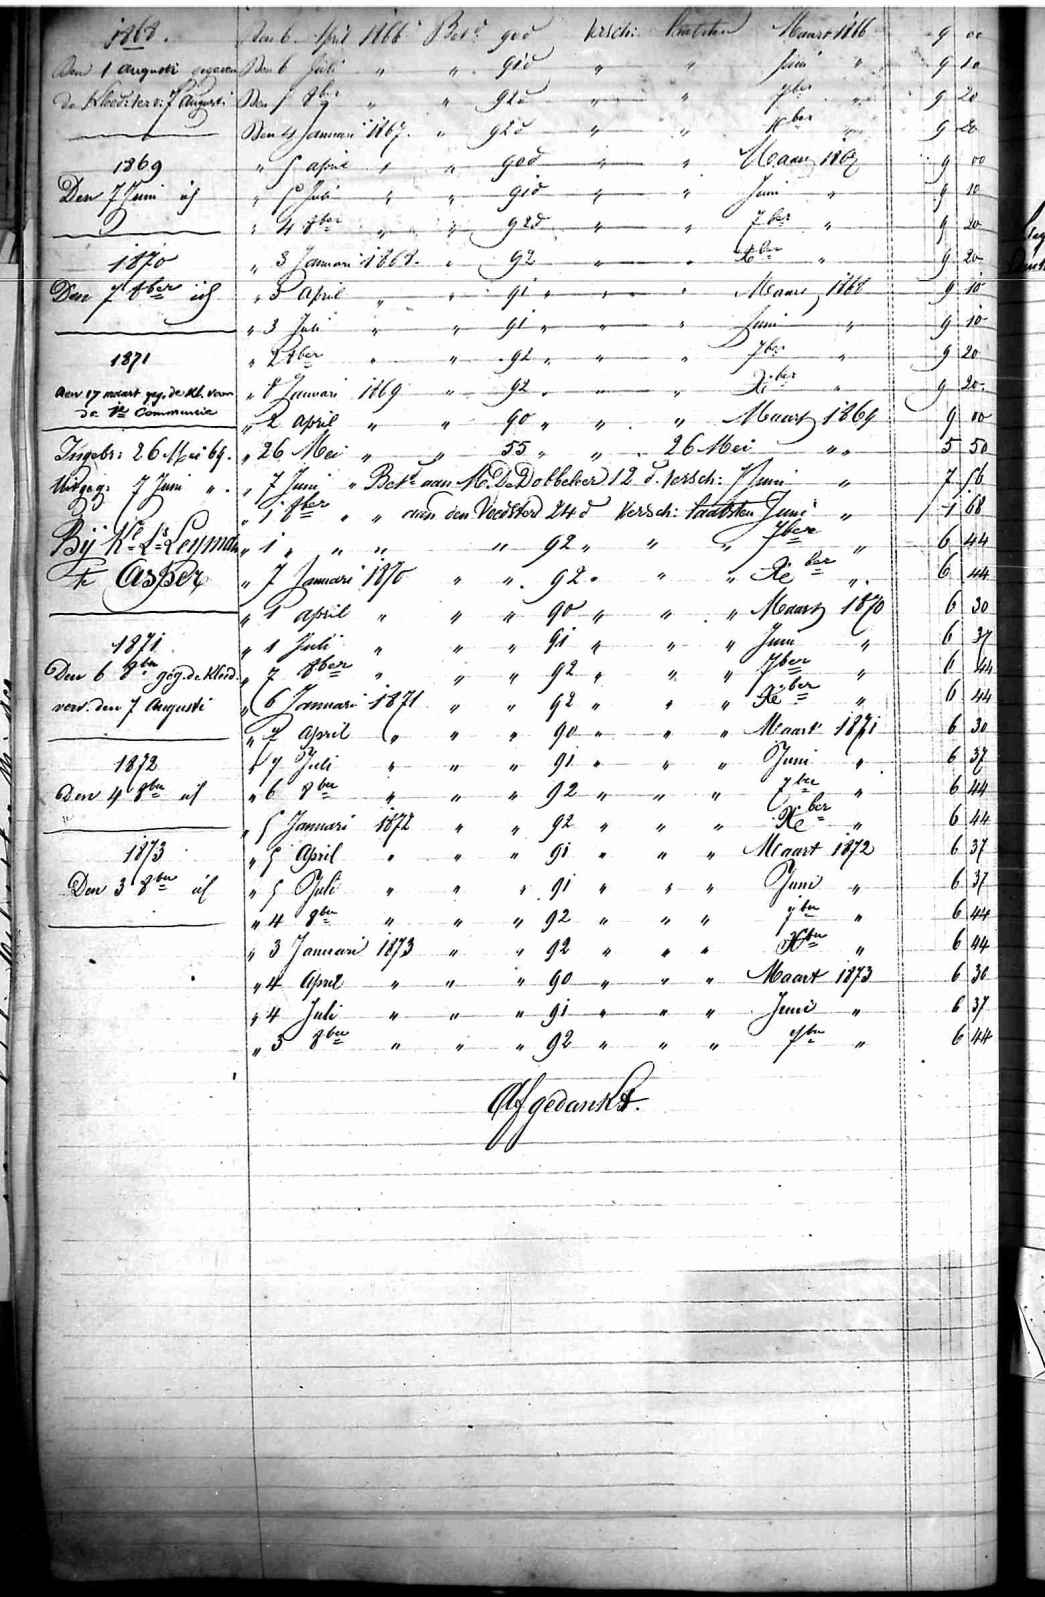 1868.
Den 1 Augusti gegeven
de Kleed. verv: 7 Augusti
1869
Den 7 Juni id
1870
Den 7 8ber id
1871
den 17 maart geg. de kl. voor
de 1e Communie
Ingebr: 26 Mei 69.
Uitgeg: 7 Juni " .
Bij Ks. Ls. Leyman
te Asper
1871
Den 6 8ber geg. de kleed.
verv. den 7 Augusti
1872
Den 4 8ber id
1873
Den 3 8ber id
Den 6 April 1866 Betd 90d versch: laatsten Maart 1866 9 00
Den 6 Juli " " 91d " " Juni " 9 10
Den 5 8ber " " 92d " " 7ber " 9 20
Den 4 Januari 1867. " 92d " " Xber " 9 20
" 5 april " " 90d " " Maart 1867 9 00
" 5 Juli " " 91d " " Juni " 9 10
" 4 8ber " " 92d " " 7ber " 9 20
" 3 Januari 1868. " 92 " " Xber " 9 20
" 3 April " " 91 " " " Maart 1868 9 10
" 3 Juli " " 91 " " " Juni " 9 10
" 2 8ber " " 92 " " " 7ber " 9 20
" 8 Januari 1869 " 92 " " Xber " 9 20
" 2 april " " 90 " " " Maart 1869 9 00
" 26 Mei " " 55 " " . 26 Mei " " 5 50
" 7 Juni " Betd aan M. De Dobbeleer 12 d. versch: 7 Juni " 7 56
" 1 8ber " " aan den Voedster 24 d versch: laatsten Juni " 1 68
" 1 " " " " 92 " " " 7ber " 6 44
" 7 Januari 1870 " " 92 " " " Xber " 6 44
" 1 april " " " 90 " " " Maart 1870 6 30
" 1 Juli " " " 91 " " " Juni " 6 37
" 7 8ber " " " 92 " " " 7ber " 6 44
" 6 Januari 1871 " " 92 " " " Xber " 6 44
" 7 April " " " 90 " " " Maart 1871 6 30
" 7 Juli " " " 91 " " " Juni " 6 37
" 6 8ber " " " 92 " " " 7ber " 6 44
" 5 Januari 1872 " " 92 " " " Xber " 6 44
" 5 April " " " 91 " " " Maart 1872 6 37
" 5 Juli " " " 91 " " " Juni " 6 37
" 4 8ber " " " 92 " " " 7ber " 6 44
" 3 Januari 1873 " " 92 " " " Xber " 6 44
" 4 April " " " 90 " " " Maart 1873 6 30
" 4 Juli " " " 91 " " " Juni " 6 37
" 3 8ber " " " 92 " " " 7ber " 6 44
Afgedankt.